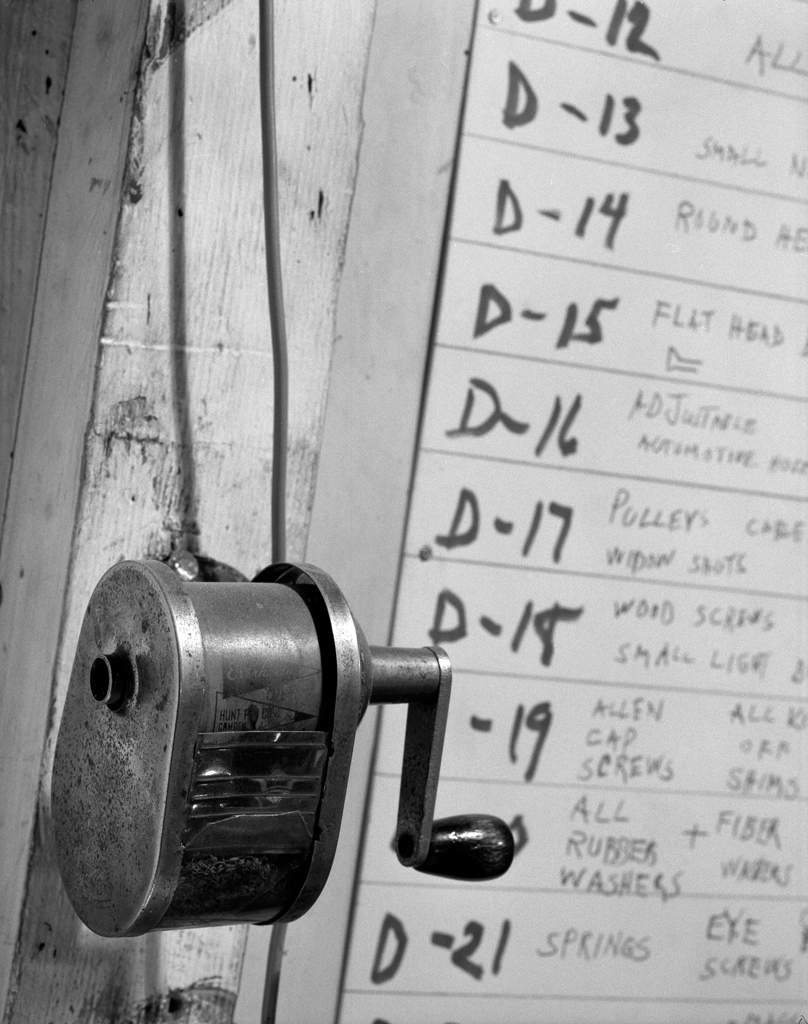 D-12 ALL
D-13 SMALL
D-14 ROUND HE
D-15 FLAT HEAD
D-16 ADJUITABLE
AUTOMOTIVE
D-17 PULLEYS
WIDOW
D-18 WOOD SCREWS
SMALL LIGHT
-19 ALLEN ALL
CAP OFF
SCREWS SHIMS
ALL + FIBER
RUBBER
WASHERS
D-21 SPRINGS EYE
SCREWS
HUNT